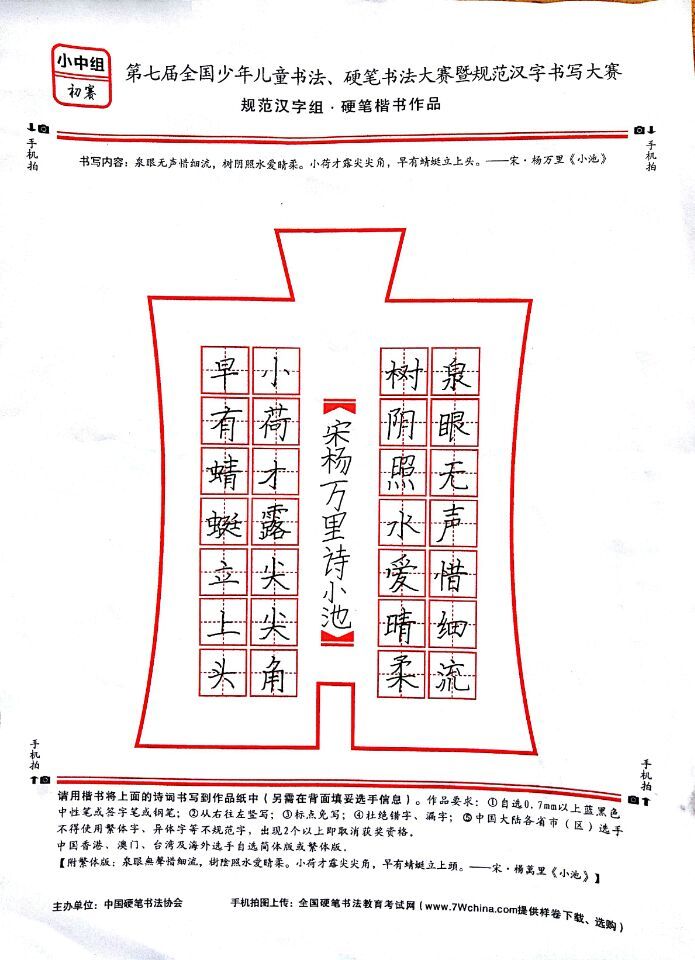 小中组
初赛
第七届全国少年儿童书法、硬笔书法大赛暨规范汉字书写大赛
规范汉字组·硬笔楷书作品
手机拍
手机拍
书写内容：泉眼无声惜细流，树阴照水爱晴柔。小荷才露尖尖角，早有蜻蜓立上头。——宋·杨万里《小池》
泉眼无声惜细流
树阴照水爱晴柔
宋杨万里诗小池
小荷才露尖尖角
早有蜻蜓立上头
手机拍
手机拍
请用楷书将上面的诗词书写到作品纸中（另需在背面填妥选手信息）。作品要求：①自选0.7mm以上蓝黑色
中性笔或签字笔或钢笔；②从右往左竖写；③标点免写；④杜绝错字、漏字；⑤中国大陆各省市（区）选手
不得使用繁体字、异体字等不规范字，出现2个以上即取消获奖资格。
中国香港、澳门、台湾及海外选手自选简体版或繁体版。
【附繁体版：泉眼無聲惜細流，樹陰照水愛晴柔。小荷才露尖尖角，早有蜻蜓立上頭。——宋·楊萬里《小池》】
主办单位：中国硬笔书法协会
手机拍图上传：全国硬笔书法教育考试网（www.7Wchina.com提供样卷下载、选购）